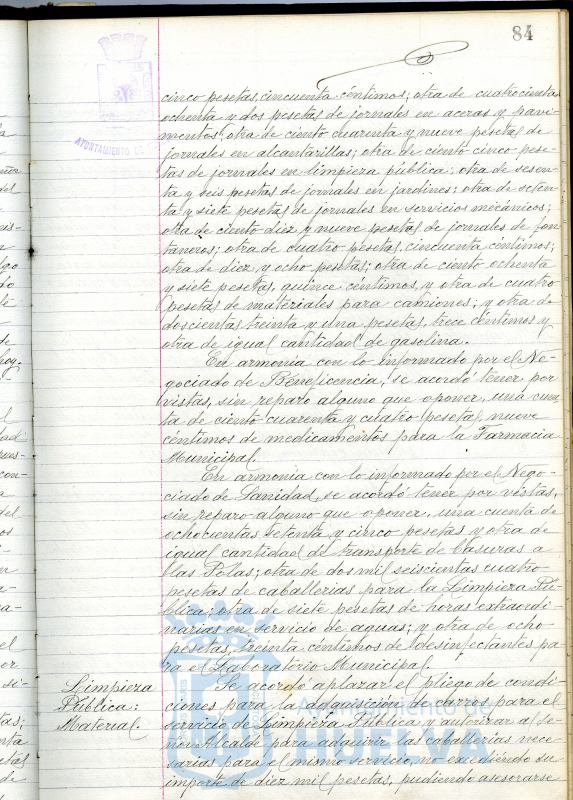 84
AYUNTAMIENTO DE
cinco pesetas, cincuenta céntimos; otra de cuatrocientas
ochenta y dos pesetas de jornales en aceras y pavi-
mentos; otra de ciento cuarenta y nueve pesetas de
jornales en alcantarillas; otra de ciento cinco pese-
tas de jornales en limpieza pública; otra de sesen-
ta y seis pesetas de jornales en jardines; otra de seten-
ta y siete pesetas de jornales en servicios mecánicos;
otra de ciento diez y nueve pesetas de jornales de fon-
taneros; otra de cuatro pesetas, cincuenta céntimos;
otra de diez y ocho pesetas; otra de ciento ochenta
y siete pesetas, quince céntimos, y otra de cuatro
pesetas de materiales para camiones; y otra de
doscientas treinta y una pesetas, trece céntimos y
otra de igual cantidad de gasolina.
En armonía con lo informado por el Ne-
gociado de Beneficencia, se acordó tener por
vistas, sin reparo alguno que oponer, una cuen-
ta de ciento cuarenta y cuatro pesetas, nueve
céntimos de medicamentos para la Farmacia
Municipal.
En armonía con lo informado por el Nego-
ciado de Sanidad, se acordó tener por vistas,
sin reparo alguno que oponer, una cuenta de
ochocientas setenta y cinco pesetas y otra de
igual cantidad de transporte de basuras a
las Polas; otra de dos mil seiscientas cuatro
pesetas de caballerías para la Limpieza Pú-
blica; otra de siete pesetas de horas extraordi-
narias en servicio de aguas; y otra de ocho
pesetas, treinta céntimos de desinfectantes pa-
ra el Laboratorio Municipal.
Limpieza
Pública:
Material.
Se acordó aplazar el pliego de condi-
ciones para la adquisición de carros para el
servicio de Limpieza Pública y autorizar al se-
ñor Alcalde para adquirir las caballerías nece-
sarias para el mismo servicio, no excediendo su
importe de diez mil pesetas, pudiendo asesorarse